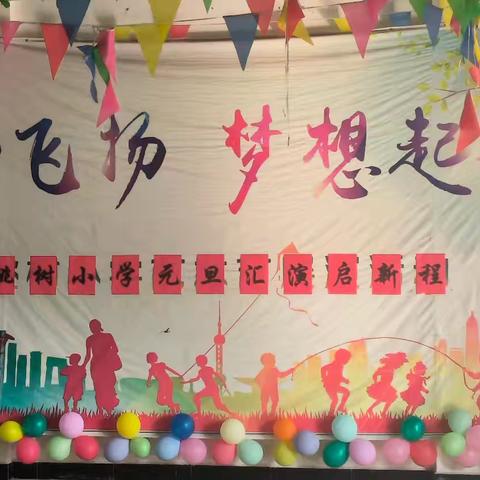 飞扬 梦想起
桃树小学元旦汇演启新程